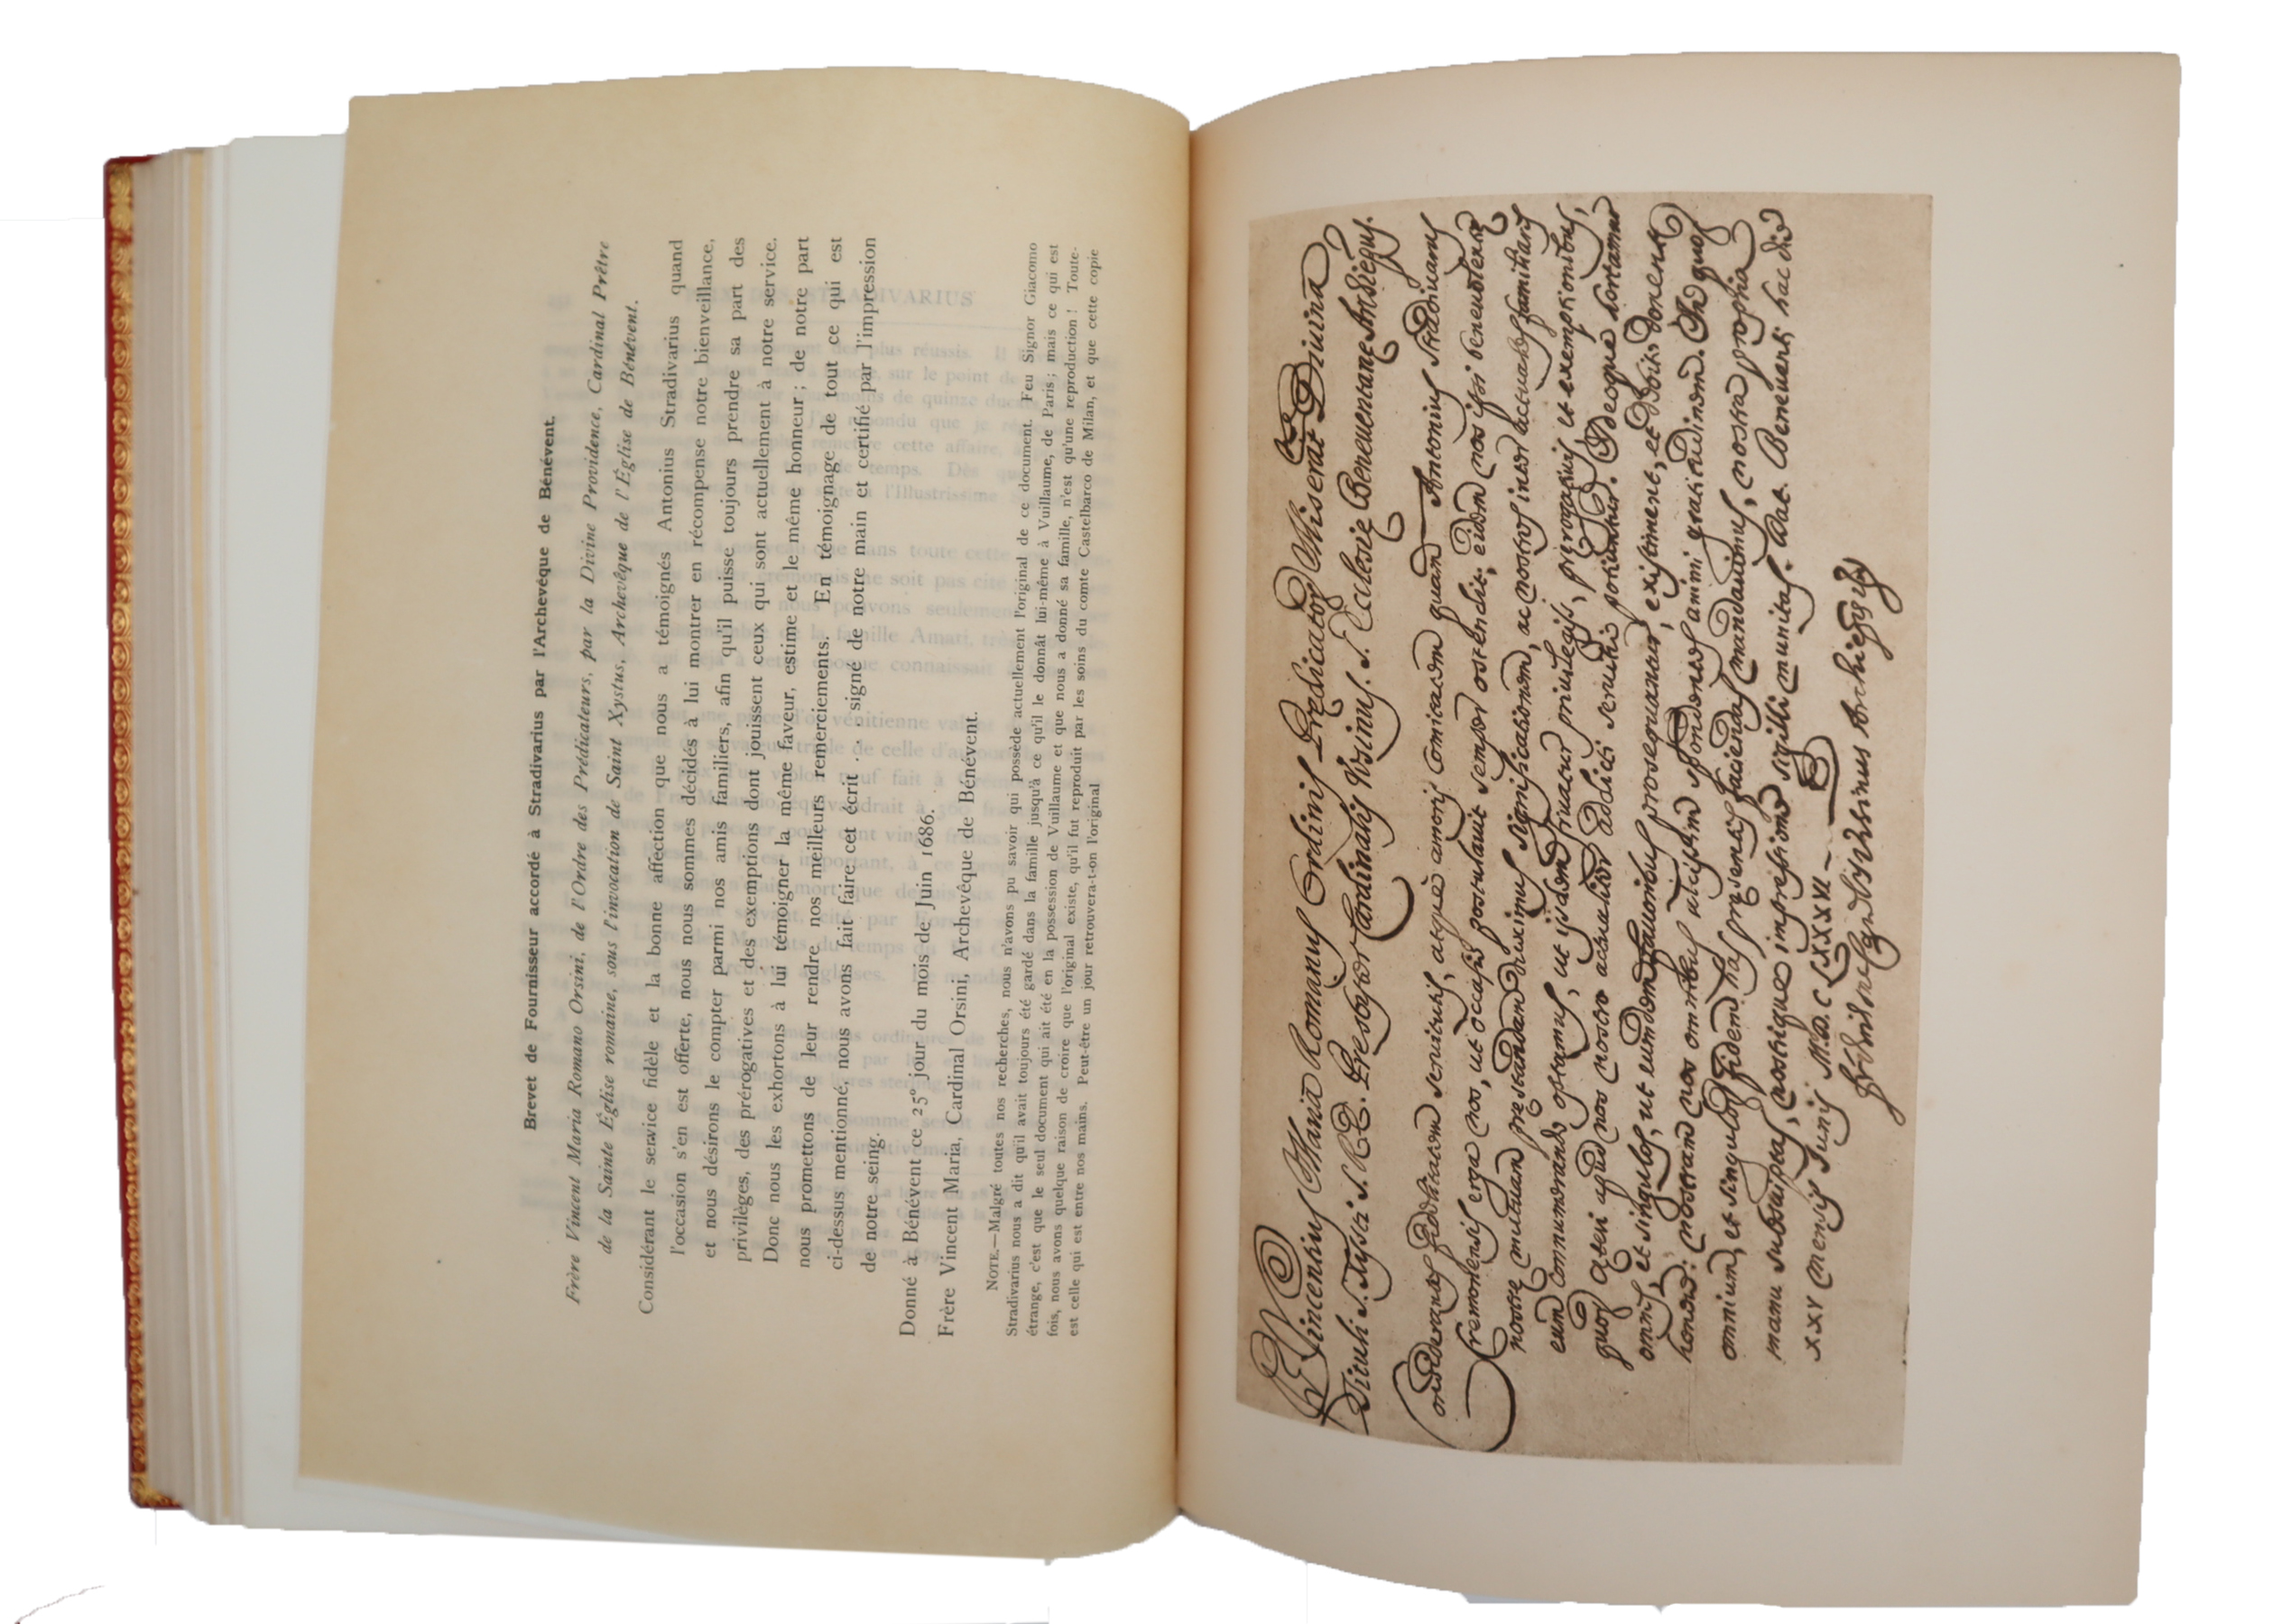 Brevet de Fournisseur accordé à Stradivarius par l'Archevêque de Bénévent.
Frère Vincent Maria Romano Orsini, de l'Ordre des Prédicateurs, par la Divine Providence, Cardinal Prêtre
de la Sainte Église romaine, sous l'invocation de Saint Xystus, Archevêque de l'Église de Bénévent.
Considérant le service fidèle et la bonne affection que nous a témoignés Antonius Stradivarius quand
l'occasion s'en est offerte, nous nous sommes décidés à lui montrer en récompense notre bienveillance,
et nous désirons le compter parmi nos amis familiers, afin qu'il puisse toujours prendre sa part des
privilèges, des prérogatives et des exemptions dont jouissent ceux qui sont actuellement à notre service.
Donc nous les exhortons à lui témoigner la même faveur, estime et le même honneur ; de notre part
nous promettons de leur rendre nos meilleurs remerciements. En témoignage de tout ce qui est
ci-dessus mentionné, nous avons fait faire cet écrit . . . signé de notre main et certifié par l'impression
de notre seing.
Donné à Bénévent ce 25e jour du mois de Juin 1686.
Frère Vincent Maria, Cardinal Orsini, Archevêque de Bénévent.
NOTE.—Malgré toutes nos recherches, nous n'avons pu savoir qui possède actuellement l'original de ce document. Feu Signor Giacomo
Stradivarius nous a dit qu'il avait toujours été gardé dans la famille jusqu'à ce qu'il le donnât lui-même à Vuillaume, de Paris ; mais ce qui est
étrange, c'est que le seul document qui ait été en la possession de Vuillaume et que nous a donné sa famille, n'est qu'une reproduction ! Toute-
fois, nous avons quelque raison de croire que l'original existe, qu'il fut reproduit par les soins du comte Castelbarco de Milan, et que cette copie
est celle qui est entre nos mains. Peut-être un jour retrouvera-t-on l'original
Vincentius Maria Romanus Ordinis Predicatorum Miseratione Divina
Tituli S. Xysti S. R. E. Presbyter Cardinalis Vrsinus. S. Ecclesiæ Beneuentanæ
fidelitatem seruitus, atque amoris Antonius Stradiuarius
Cremonensis erga nos, ut occasio postulauit semper ostendit; eidem nos
nostre mutuam significationem, ac nostros inter actuales familiares
eum connumerando optamus, ut priuilegijs, prerogatiuis et exemptionibus,
quos apud nos nostro seruitio
omnes, et singulos, ut eumdem fauoribus prosequantur, existiment, et
honore: nostram nos omnibus animi gratitudinem. In quor
omnium, et singulorum fidem has presentes faciendas mandauimus, nostra propria
manu nostrique impressione sigilli munitas. Dat. Beneuenti hac die
XXV mensis Junij M.D.C.LXXXVI